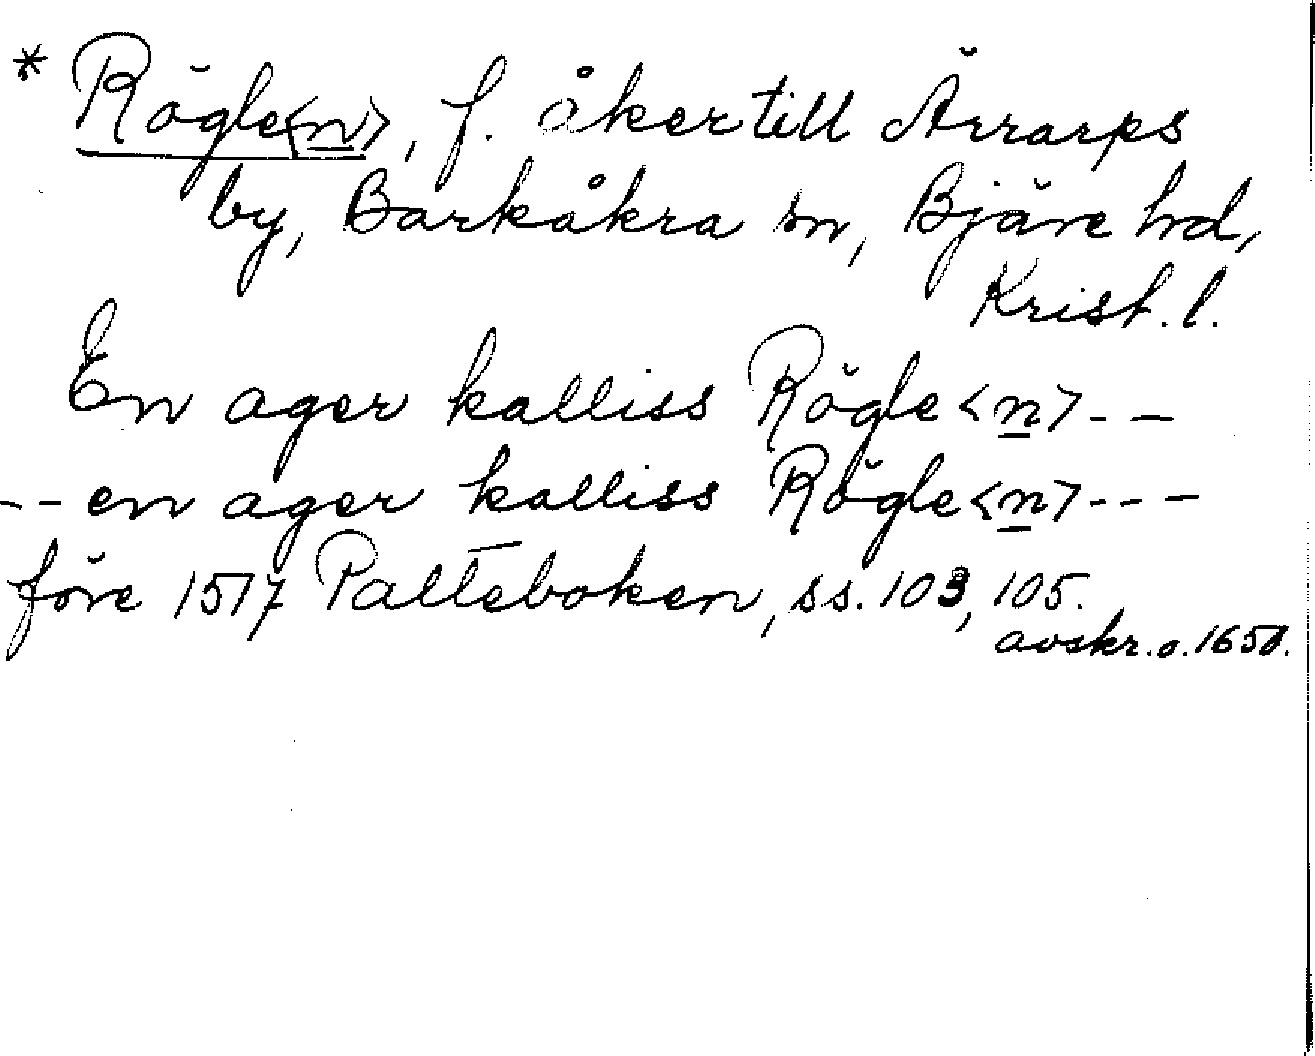 * Rögle<n>, f. åker till Ärrarps
by, Barkåkra sn, Bjäre hd,
Krist. l.
En ager kalliss Rögle<n>- -
- - en ager kalliss Rögle<n>- - -
före 1517 Palteboken, ss. 103, 105.
avskr. o. 1650.